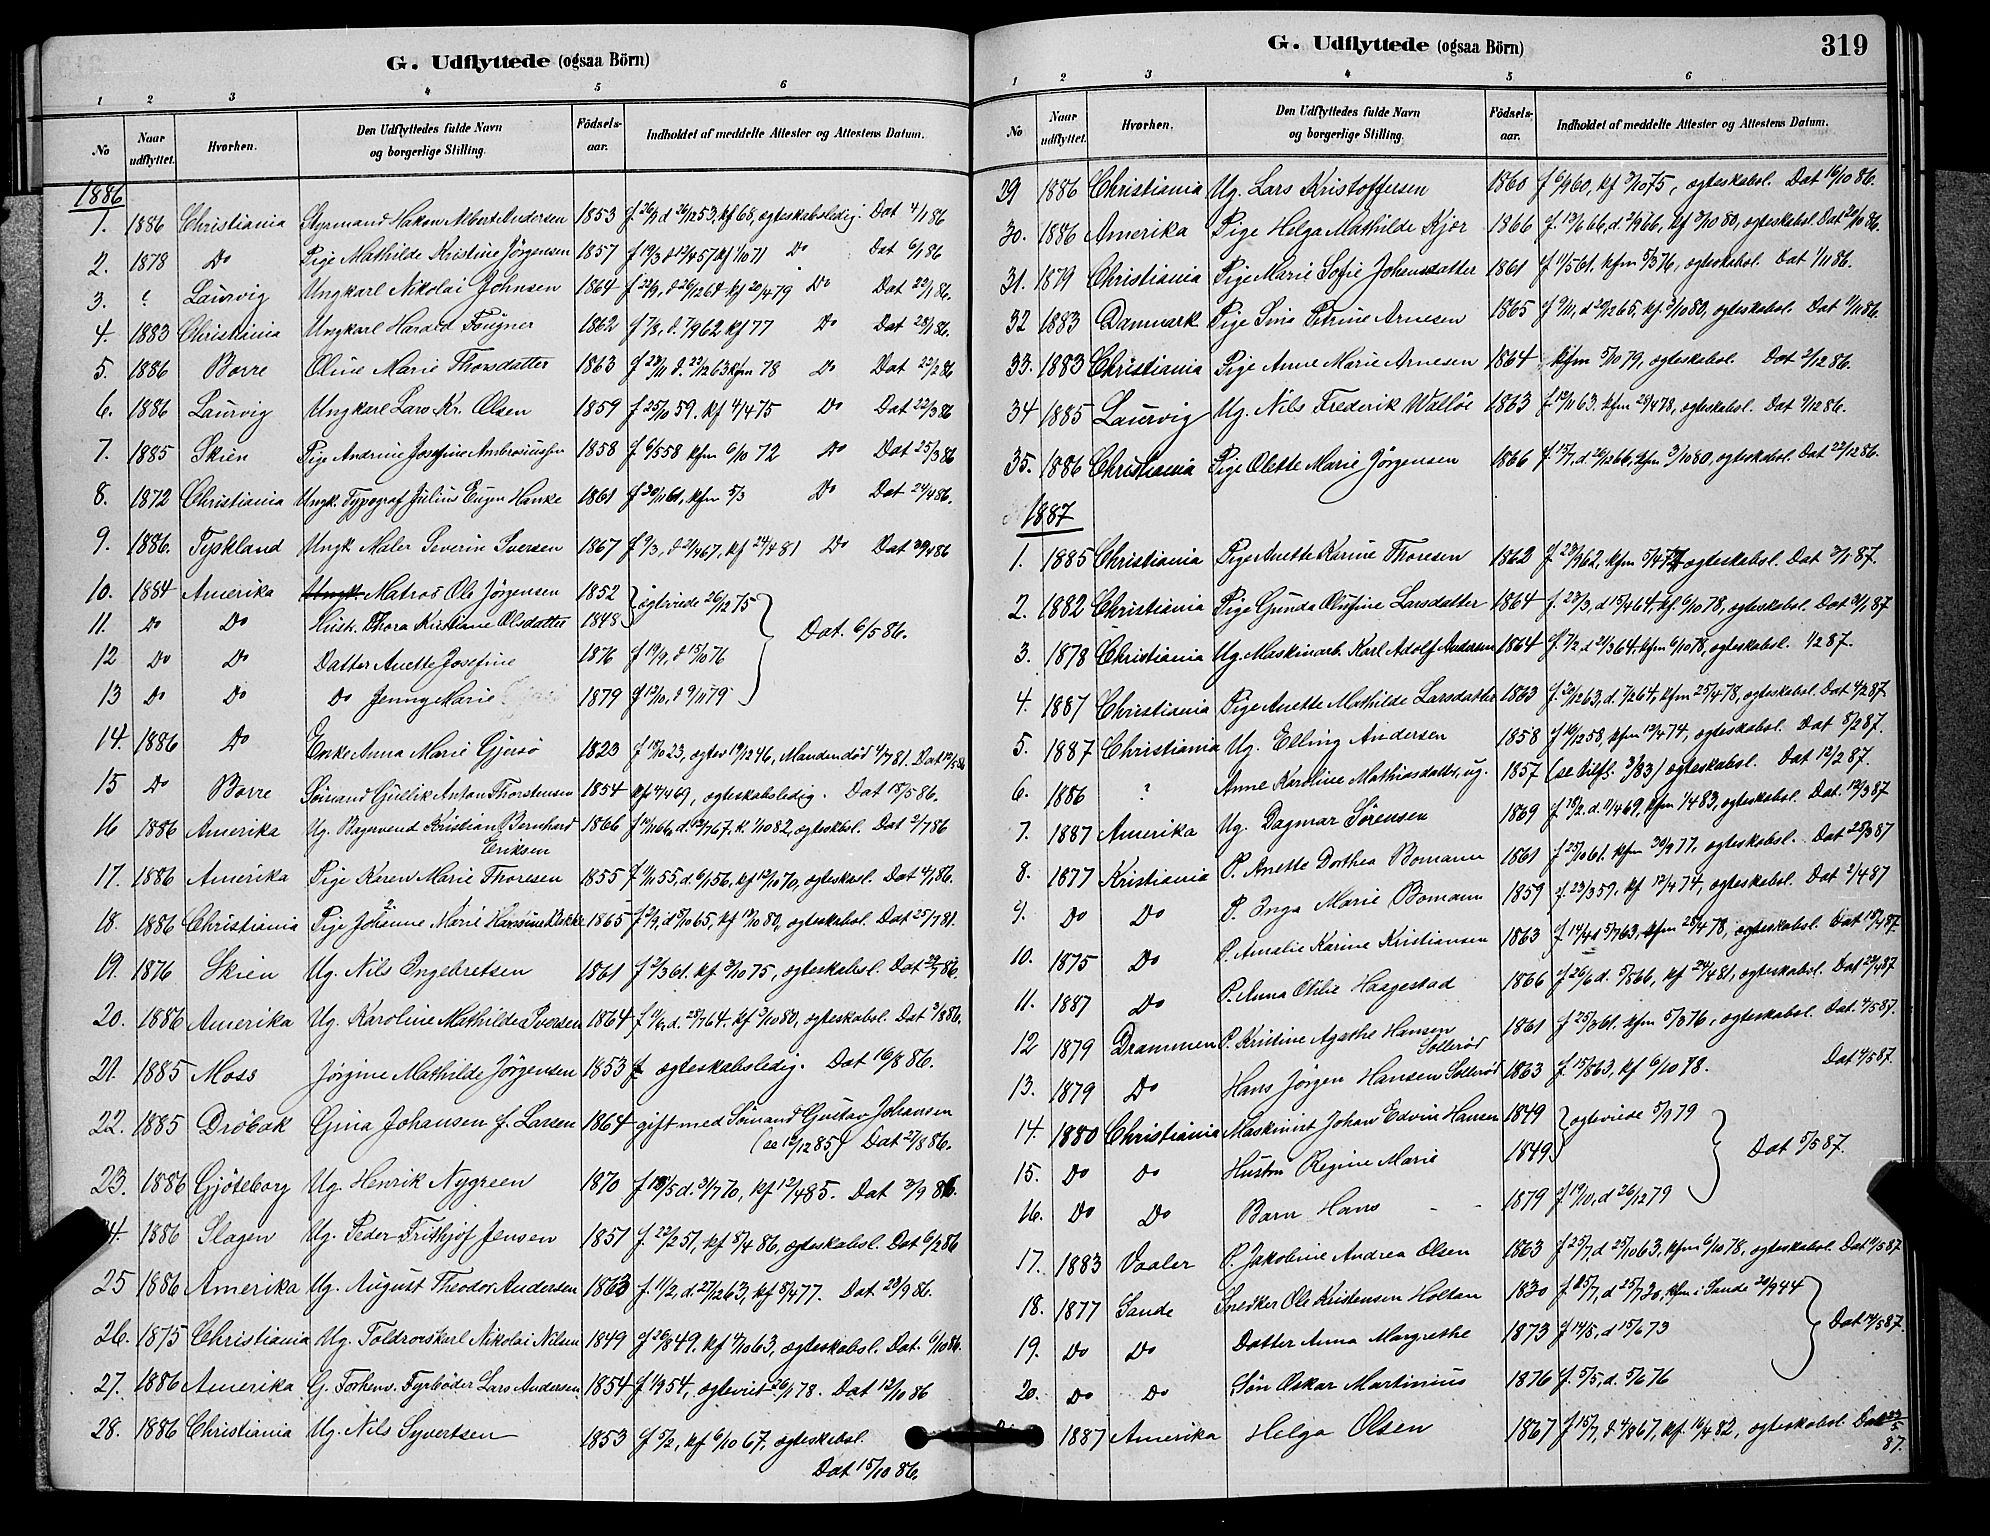 G. Udflyttede (ogsaa Börn)
1 2 3 4 5 6
No Naar udflyttet. Hvorhen. Den Udflyttedes fulde Navn og borgerlige Stilling. Födsels-aar. Indholdet af meddelte Attester og Attestens Datum.
1886
1. 1886 Christiania Styrmand Hakon Albert Andersen 1853 f. 26/9 d 26/12 53, kf 68, ægteskabsledig Dat 4/1 86
2. 1878 Do Pige Mathilde Kristine Jörgensen 1857 f 19/3 d 12/4 57 kf 1/10 71 Do Dat 6/1 86
3. ? Laurvig Ungkarl Nikolai Johnsen 1864 f 22/9, d 26/12 64 kf 20/4 79 Do Dat 22/1 86.
4. 1883 Christiania Ungkarl Harald Fougner 1862 f 7/8, d. 7/9 62 kf 77 Do Dat 28/1 86.
5. 1886 Borre Oline Marie Thorsdatter 1863 f 22/11 d. 22/12 63 kfm 78 Do Dat 22/2 86
6. 1886 Laurvig Ungkarl Lars Kr. Olsen 1859 f 25/10 59. kf 4/4 75 Do Dat 22/3 86
7. 1885 Skien Pige Andrine Josefine Ambrosiussen 1858 f 6/5 58 kfm 6/10 72 Do Dat 25/3 86
8. 1872 Christiania Ungk. Typograf Julius Eugen Hanke 1861 f 30/11 61, kfm 5/3 Do Dat 24/4 86.
9. 1886. Tyskland Ungk Maler Severin Iversen 1867 f 9/3, d 21/4 67, kf 24/4 81 Do Dat 30/4 86
10. 1884 Amerika Ungk. Matros Ole Jörgensen 1852 ægteviede 26/12 75
11. Do Do Hustr. Thora Kristiane Olsdatter 1848 Dat. 6/5 86.
12 Do Do Datter Anette Josefine 1876 f 19/9, d 15/10 76
13 Do Do Do Jenny Marie 1879 f 12/10, d 9/11 79
14. 1886 Do Enke Anna Marie Gjersö 1823 f 18/10 23, ægtev 19/12 46, Manden död 4/7 81. Dat 12/5 86
15 Do Borre Sömand Gullik Anton Thorstensen 1854 kf 4/4 69, ægteskabsledig. Dat 18/5 86.
16 1886 Amerika Ug. Bagersvend Kristian Bernhard 1866 f 12/11 66, d. 12/7 67, k. 1/10 82, ægteskbsl. Dat 2/7 86
Eriksen
17. 1886 Amerika Pige Karen Marie Thoresen 1855 f 1/11 55, d 6/1 56, kf 12/10 70, ægteskbsl. Dat 4/8 86.
18. 1886 Christiania Pige Johanne Marie Hansine Bekke 1865 f 2/9, d 8/10 65, kf 10/10 80, ægteskabsl. Dat 25/7 81.
19. 1876 Skien Ug. Nils Ingebretsen 1861 f 2/3 61. kf. 3/10 75, ægteskabsl. Dat 29/7 86.
20. 1886 Amerika Ug. Karoline Mathilde Iversen 1864 f 11/6, d. 28/7 64. kf 3/10 80, ægteskabsl. Dat 3/8 86.
21. 1885 Moss Jörgine Mathilde Jörgensen 1853 f ægteskabsledig. Dat 16/8 86.
22. 1885 Dröbak Gina Johansen f. Larsen 1864 gift med Sömand Gustav Johansen
(ae 12/12 85) Dat 27/8 86.
23. 1886 Gjöteborg Ug. Henrik Nygreen 1870 f 18/5 d. 31/7 70, kf 12/4 85. Dat 3/9 86.
4. 1886 Slagen Ug. Peder Frithjof Jensen 1851 f. 22/2 51, kf 8/4 86, ægteskabsl. Dat 6/2 86
25 1886 Amerika Ug. August Theodor Andersen 1863 f. 11/2, d. 27/12 63, kf 8/4 77. Dat 23/9 86.
26. 1875 Christiania Ug. Toldrorskarl Nikolai Nilsen 1849 f 26/8 49, kf 4/10 63, ægteskabsl. Dat. 6/10 86.
27. 1886 Amerika G. Forhenv. Fyrböder Lars Andersen 1854 f 1/9 54, ægteviet 26/1 78. Dat 12/10 86
28. 1886 Christiania Ug. Nils Syvertsen 1853 f 5/2, kf 6/10 67, ægteskabsl.
Dat 15/10 86.
G. Udflyttede (ogsaa Börn) 319
1 2 3 4 5 6
No Naar udflyttet. Hvorhen. Den Udflyttedes fulde Navn og borgerlige Stilling. Födsels-aar. Indholdet af meddelte Attester og Attestens Datum.
29 1886 Christiania Ug. Lars Kristoffersen 1860 f 6/9 60, kf 3/10 75, ægteskabsl. Dat 16/10 86.
30. 1886 Amerika Pige Helga Mathilde Kjær 1866 f. 13/6 66, d. 2/9 66, kf 3/10 80, ægteskabsl. Dat 20/10 86.
31. 1879 Christiania Pige Marie Sofie Johansdatter 1861 f 11/5 61. kfm 5/3 76, ægteskabsl. Dat 1/11 86.
32 1883 Danmark Pige Sina Petrine Arnesen 1865 f 9/11, d 20/12 65, kf. 3/10 80, ægteskabsl. Dat 9/11 86.
33. 1883 Christiania Pige Anne Marie Arnesen 1864 kfm 5/10 79, ægteskabsl. Dat 2/12 86.
34 1885 Laurvig Ug. Nils Frederik Wallöe 1863 f. 12/11 63. kfm 28/4 78, ægteskabsl. Dat 7/12 86.
35. 1886 Christiania Pige Olette Marie Jörgensen 1866 f. 15/7, d 26/12 66, kfm 3/10 80, ægteskabsl. Dat 22/12 86.
1887
1. 1885 Christiania Pige Anette Karine Thoresen 1862 f. 23/9 62, kfm 5/4 77, ægteskabsl. Dat 3/1 87.
2. 1882 Christiania Pige Gunda Olufine Larsdatter 1864 f. 23/3, d 15/4 64, kf. 6/10 78, ægteskabsl. Dat 3/1 87
3. 1878 Christiania Ug. Maskinarb. Karl Adolf Andersen 1864 f. 7/2, d 21/3 64, kfm 6/10 78, ægteskabsl. 1/2 87.
4. 1887 Christiania Pige Anette Mathilde Larsdatter 1863 f. 20/12 63, d. 7/2 64, kfm 25/4 78, ægteskabsl. Dat 4/2 87
5. 1887 Christiania Ug. Elling Andersen 1858 f 19/12 58, kfm 12/4 74, ægteskabsl. Dat 8/2 87.
6. 1886 ? Anne Karoline Mathiasdatter, ug. 1857 (se tilfl. 3/83) ægteskabsl. Dat 12/2 87.
7. 1887 Amerika Ug. Dagmar Sörensen 1869 f. 19/2, d. 11/4 69, kfm 1/4 83, ægteskabsl. Dat. 12/3 87
8. 1877 Kristiania P. Anette Dorthea Bomann 1861 f 25/10 61. kfm 30/9 77, ægteskabsl. Dat 28/3 87
9. Do Do P. Inga Marie Bomann 1859 f. 23/3 59. kf 12/4 74, ægteskabsl. Dat 2/4 87
10. 1875 Do P. Amalie Karine Kristiansen 1863 f. 14/4 d 5/7 63, kfm 28/4 78, ægteskabsl. Dat 18/4 87.
11. 1887 Do P. Anna Otilie Haagestad 1866 f 26/6 d. 5/8 66, kf 24/4 81, ægteskabsl. Dat 29/4 87
12 1879 Drammen P. Kristine Agathe Hansen 1861 f 25/3 61. kfm 5/3 76, ægteskabsl. Dat. 4/5 87.
Solleröd
13. 1879 Do Hans Jörgen Hansen Solleröd 1863 f. 15/8 63, kf 6/10 78. Dat 4/5 87.
14. 1880 Christiania Maskinist Johan Edvin Hansen 1849 ægteviede 5/9 79
15. Do Do Hustru Regine Marie 1849 Dat 5/5 87.
16. Do Do Barn Hans 1879 f. 19/10, d 26/12 79
17. 1883 Vaaler P. Jakobine Andrea Olsen 1863 f 25/7, d 25/10 63, kfm 6/10 78, ægteskabsl. Dat 11/5 87
18. 1877 Sande Snedker Ole Kristensen Holtan 1830 f. 25/7, d 25/7 30, kfm i Sande 20/9 44
19. Do Do Datter Anna Margrethe 1873 f 14/5, d 15/6 73 Dat 14/5 87.
20. Do Do Sön Oskar Martinius 1876 f. 5/5, d. 5/6 76
1887 Amerika Helga Olsen 1867 f 15/7, d 4/8 67, kf. 16/4 82, ægteskabsl Dat 23/5
87.